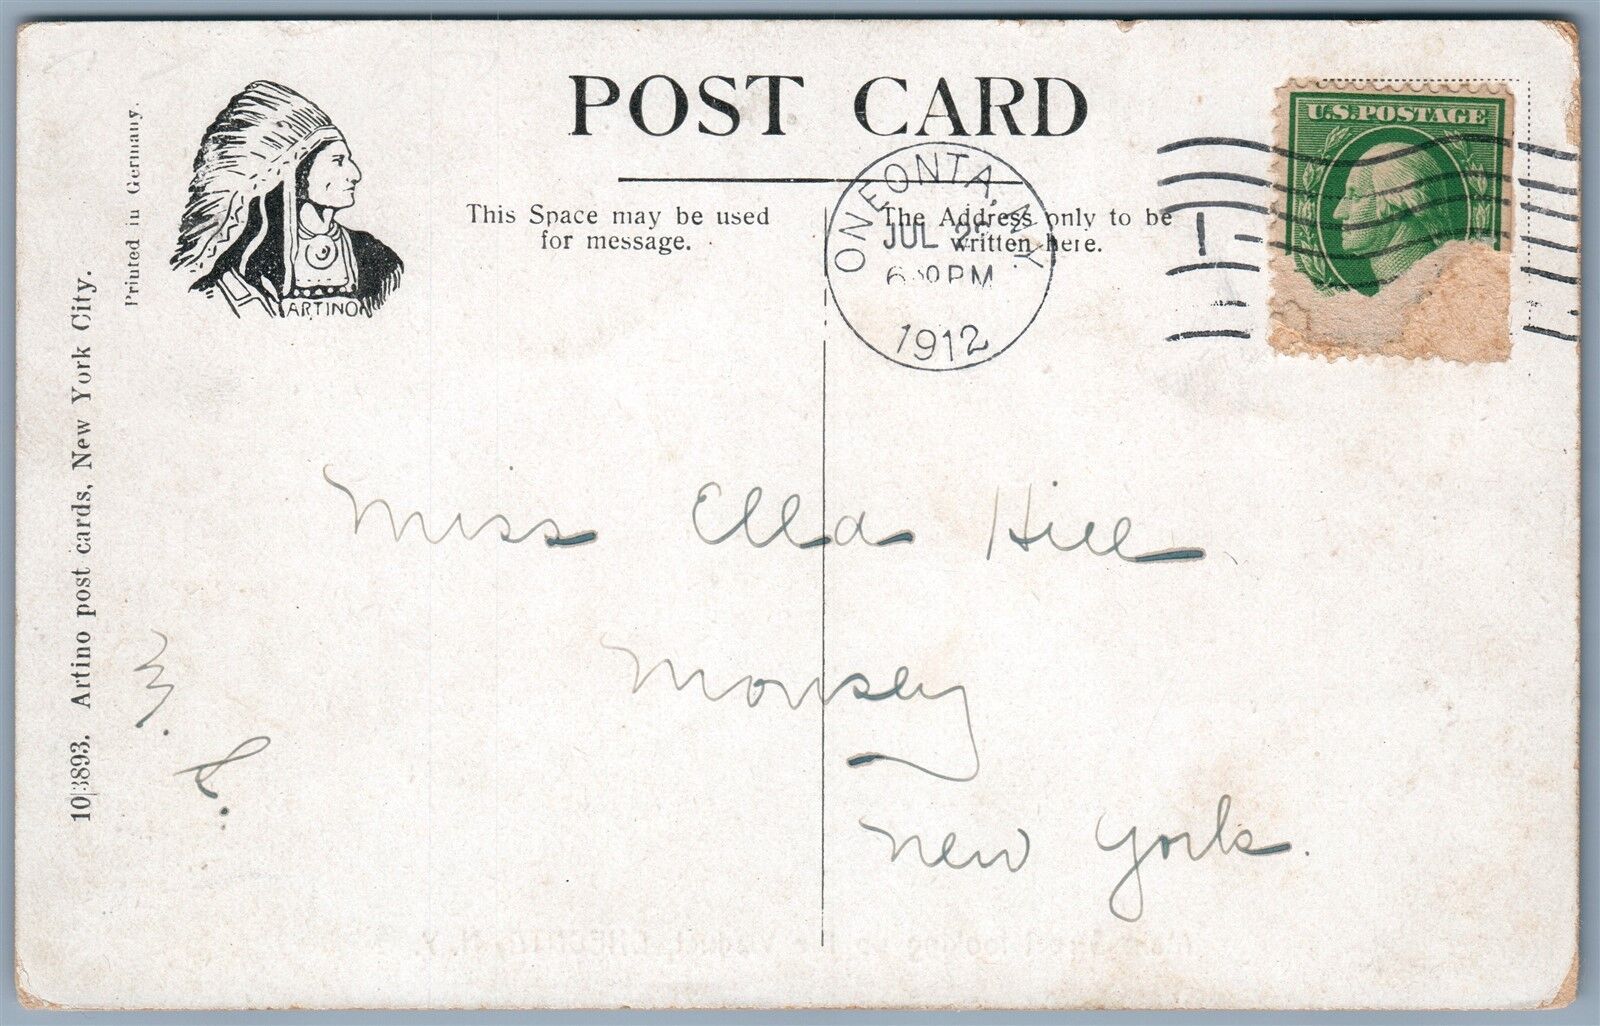 POST CARD
Printed in Germany.
ARTINO
This Space may be used
for message.
The Address only to be
written here.
ONEONTA, N.Y.
JUL
PM
1912
1
U.S.POSTAGE
Artino post cards, New York City.
Miss Ella Hill
Monsey
New York.